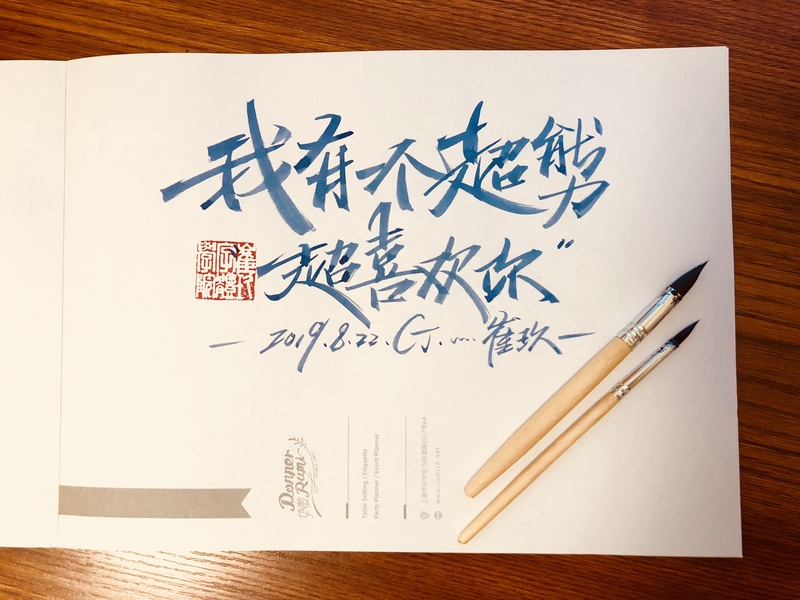 我有个超能力
超喜欢你"
— 2019.8.22. CJ.... 崔玖 —
Donner
Rumi
Table Setting / Etiquette
Party Planner / Event Planner
www.rumish.net